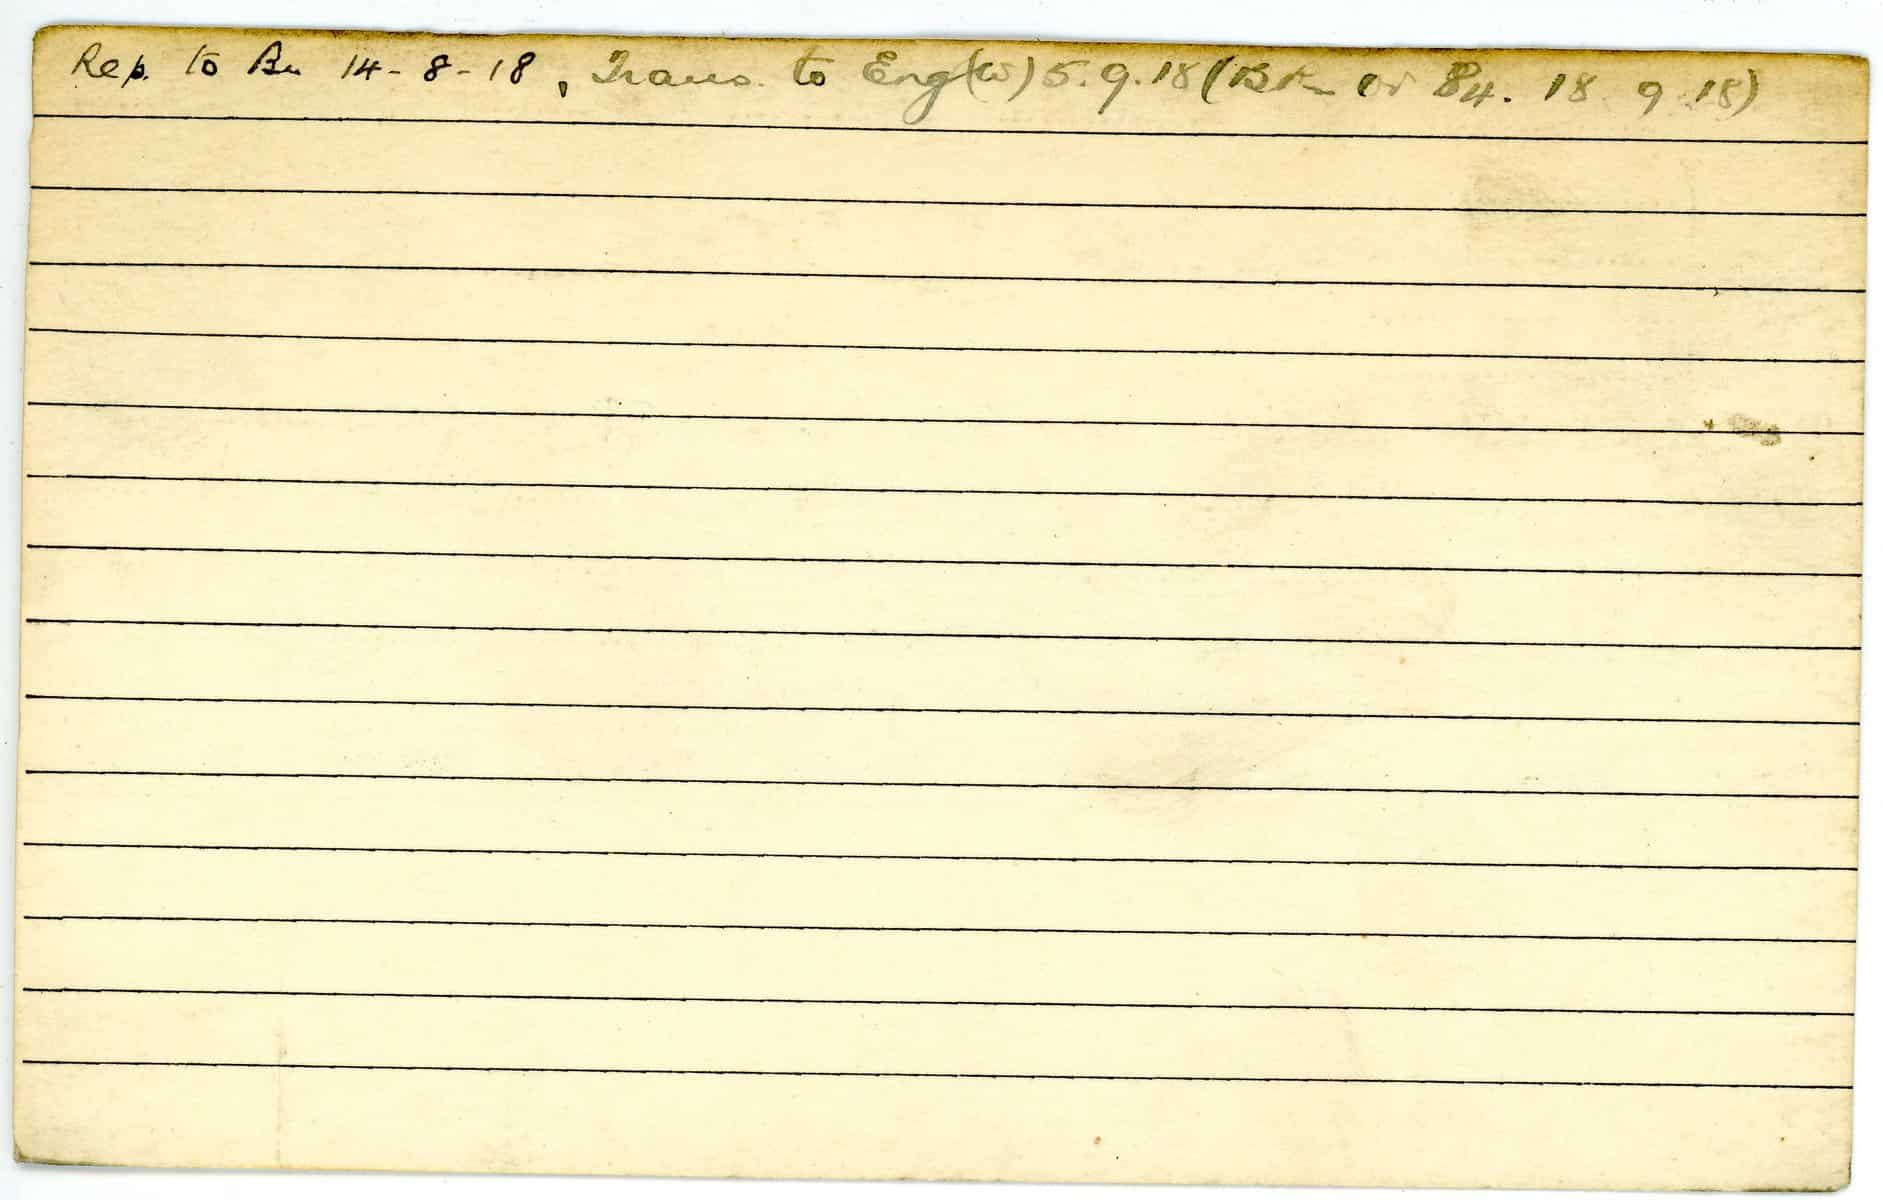 Rep. to Bn 14-8-18, Trans. to Eng (W) 5.9.18 (Bn Or 84. 18 9 18)